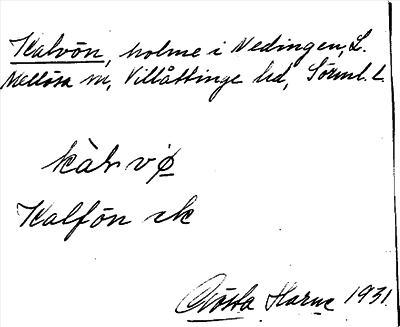 Kalvön, holme i Nedingen, L.
Mellösa sn, Villåttinge hd, Sörml. L.
kàlvø
Kalfön ek
Gösta Harne 1931